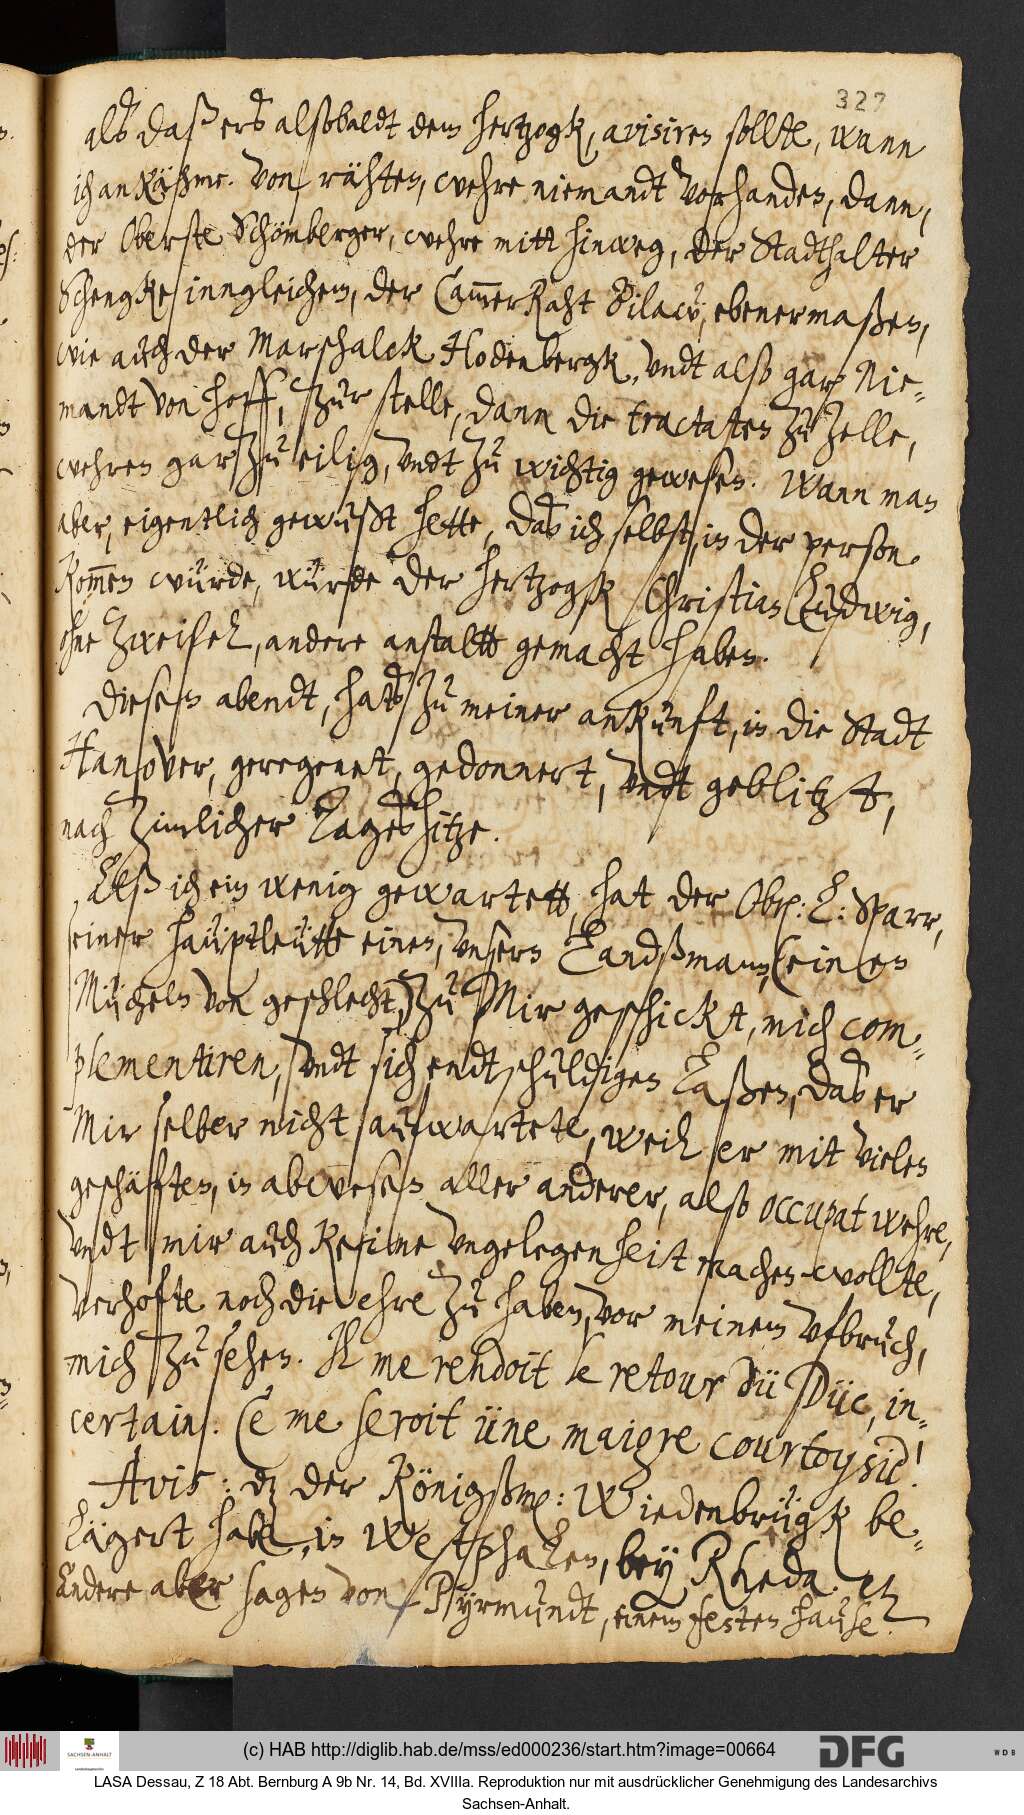 327
alß daß ers alsobaldt dem hertzogk, avisiren sollte, wann
ich ankähme. Von rähten, wehre niemandt vorhanden, dann,
der Oberste Schömberger, wehre mitt hinweg, der Stadthalter
Schengke, inngleichem, der CammerRaht Bilaw, ebenermaßen,
wie auch der Marschalck Hodenbergk, undt also gar Nie-
mandt von hoff, zur stelle, dann die tractaten zu Zelle,
wehren gar zu eilig, undt zu wichtig gewesen. Wann man
aber, eigentlich gewußt hette, das ich selbst, in der person
kommen würde, würde der hertzogk Christian Ludwig,
ohne zweifel, andere anstaltt gemacht haben.
Diesen abendt, hats zu meiner ankunft, in die Stadt
Hanover, geregenet, gedonnert, undt geblitzt,
nach zimlicher Tageshitze.
Alß ich ein wenig gewartett, hat der Obr: L: Sparr,
seiner hauptleütte einen, unsern Landßmann, (einen
Mücheln von geschlecht,) zu Mir geschickt, mich com-
plementiren, undt sich endtschuldigen laßen, das er
Mir selber nicht aufwartete, weil er mit vielen
geschäfften, in abwesen aller anderer, also occupat wehre,
undt mir auch keine ungelegenheit machen wollte,
verhofte noch die ehre zu haben, vor meinem ufbruch,
mich zu sehen. Il me rendoit le retour du Duc, in-
certain. Ce me seroit üne maigre courtoysie!
Avis: dz der Königßm: Wiedenbrügk be-
lägert habe, in Westphalen, bey Rheda. et
andere aber sagen von Pyrmundt, einem festen hause.
(c) HAB http://diglib.hab.de/mss/ed000236/start.htm?image=00664
SACHSEN-ANHALT
DFG
WDB
LASA Dessau, Z 18 Abt. Bernburg A 9b Nr. 14, Bd. XVIIIa. Reproduktion nur mit ausdrücklicher Genehmigung des Landesarchivs
Sachsen-Anhalt.